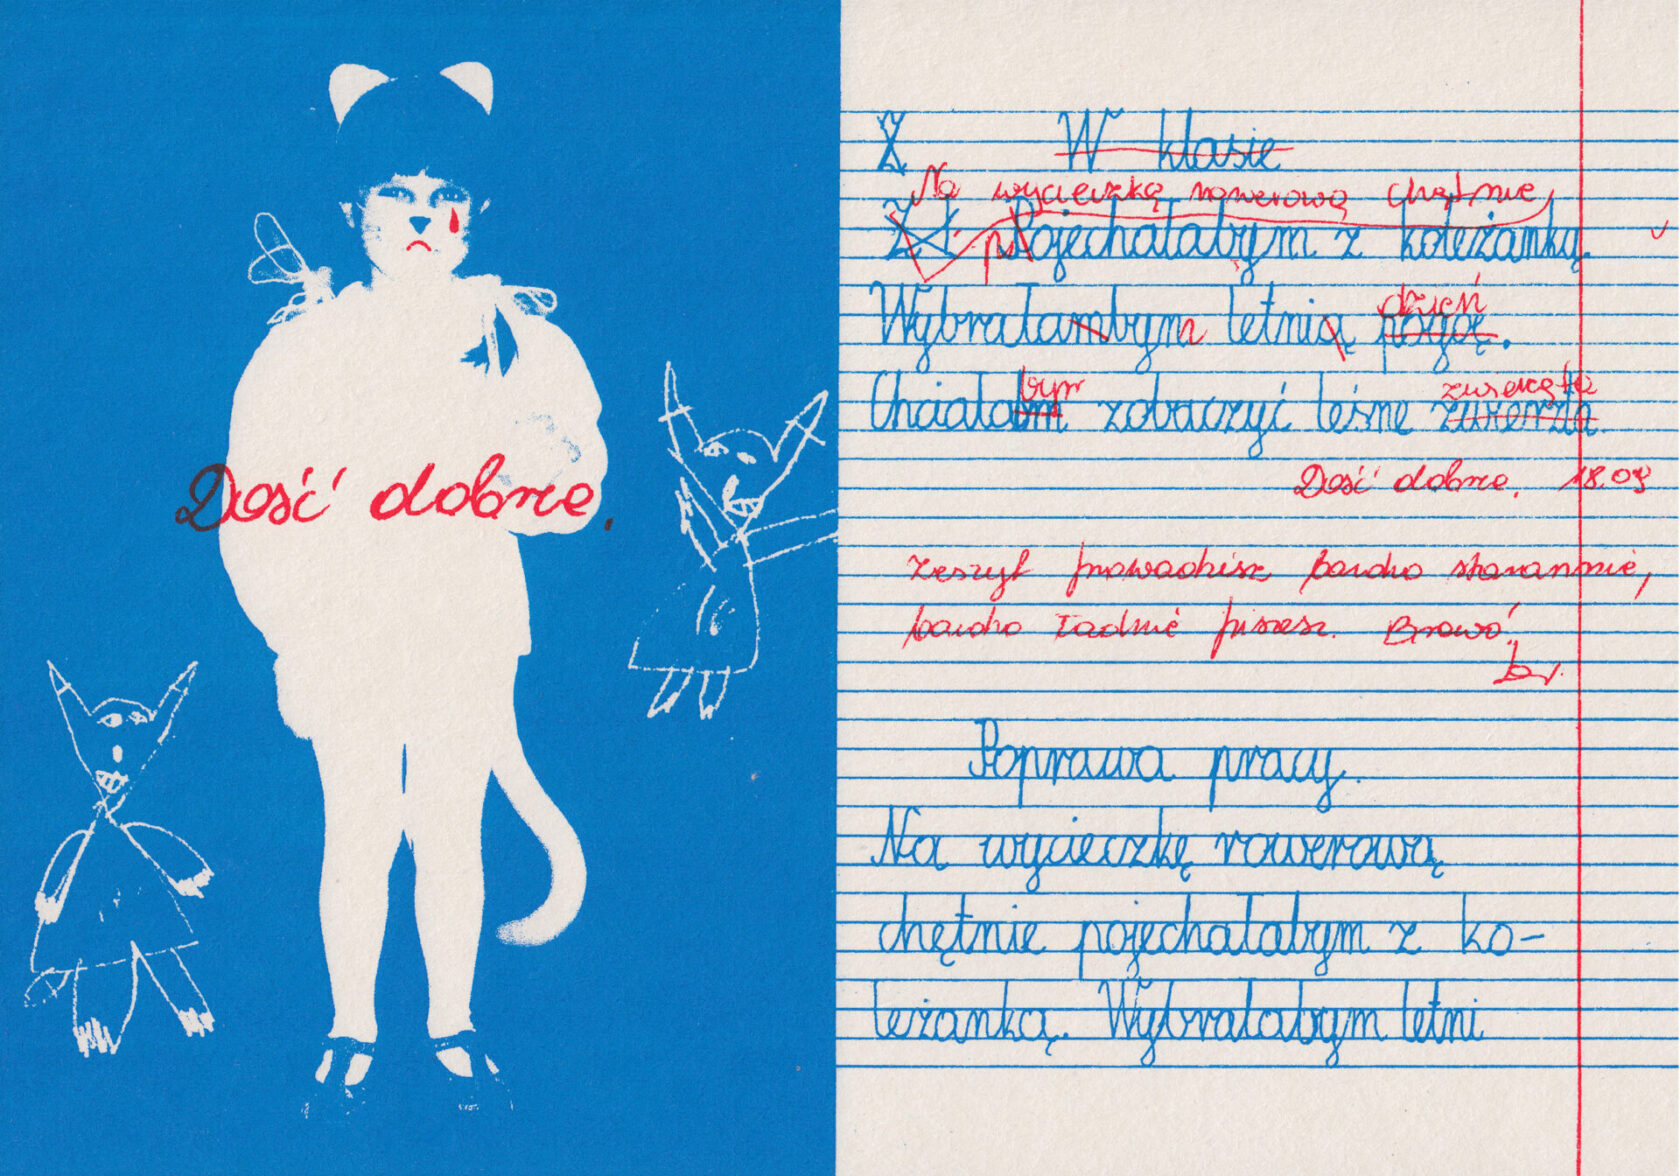 Dość dobrze.
Z W klasie
Na wycieczkę rowerową chętnie
Z p Pojechałabym z koleżanką.
dzień
Wybrałambym letnią pogdę.
bym zwierzęta
Chciałabm zobaczyć leśne zwierzta.
Dość dobrze. 18.09
Zeszyt prowadzisz bardzo starannie,
bardzo ładnie piszesz. Brawo!
Poprawa pracy.
Na wycieczkę rowerową
chętnie pojechałabym z ko-
leżanką. Wybrałabym letni